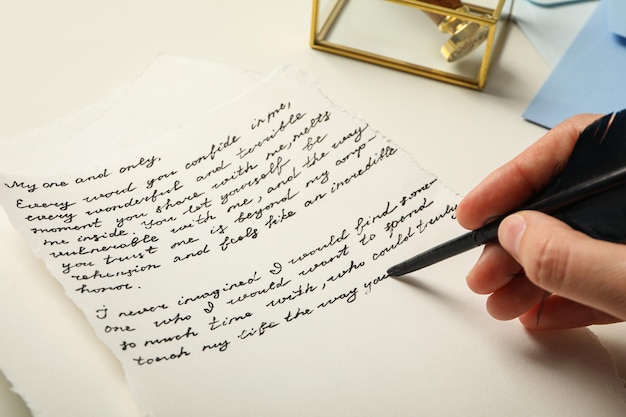 My one and only,
Every word you confide in me,
every wonderful and terrible
moment you share with me, melts
me inside. You let yourself be
vulnerable with me, and the way
you trust me is beyond my comp-
rehension and feels like an incredible
honor.
I never imagined I would find some
one who I would want to spend
so much time with, who could truly
touch my life the way you